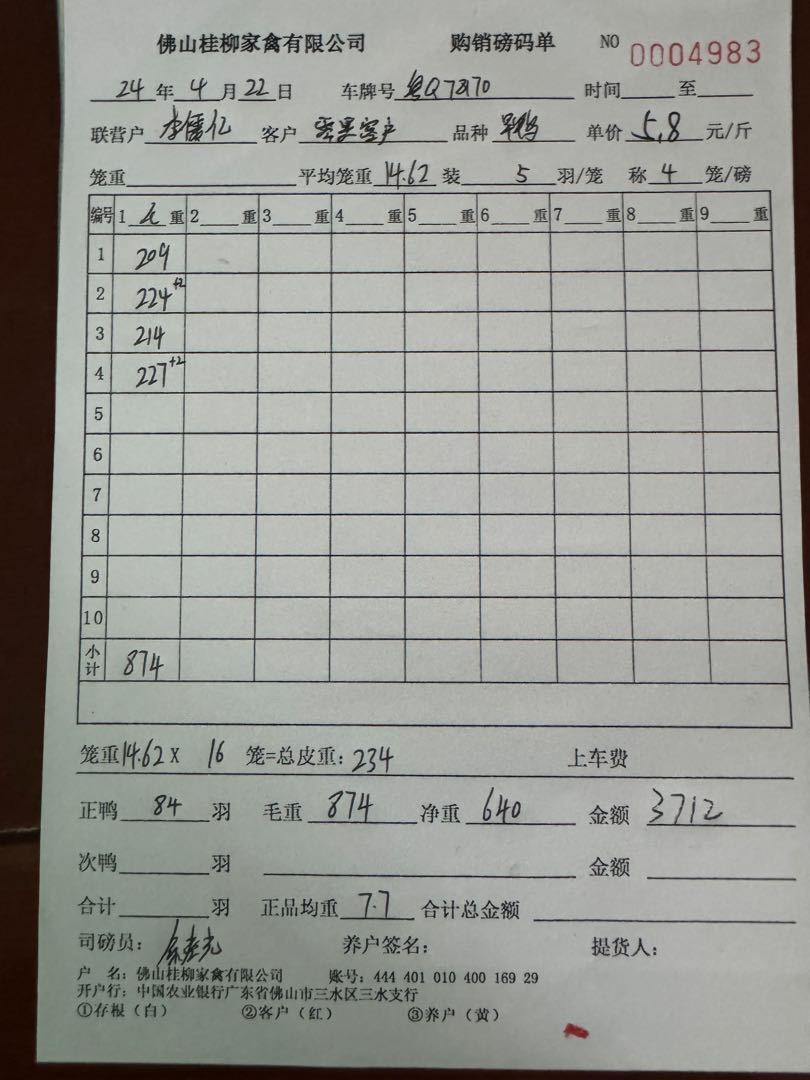 佛山桂柳家禽有限公司 购销磅码单 NO 0004983
24年4月22日 车牌号 粤Q72170 时间 至
联营户 李儒亿 客户 零买客户 品种 单价 5.8 元/斤
笼重 平均笼重 14.62 装 5 羽/笼 称 4 笼/磅
编号 1 毛 重 2 重 3 重 4 重 5 重 6 重 7 重 8 重 9 重
1 209
2 224+2
3 214
4 227+2
5
6
7
8
9
10
小计 874
笼重14.62 X 16 笼=总皮重:234 上车费
正鸭 84 羽 毛重 874 净重 640 金额 3712
次鸭 羽 金额
合计 羽 正品均重 7.7 合计总金额
司磅员: 养户签名: 提货人:
户 名:佛山桂柳家禽有限公司 账号:444 401 010 400 169 29
开户行:中国农业银行广东省佛山市三水区三水支行
①存根(白) ②客户(红) ③养户(黄)